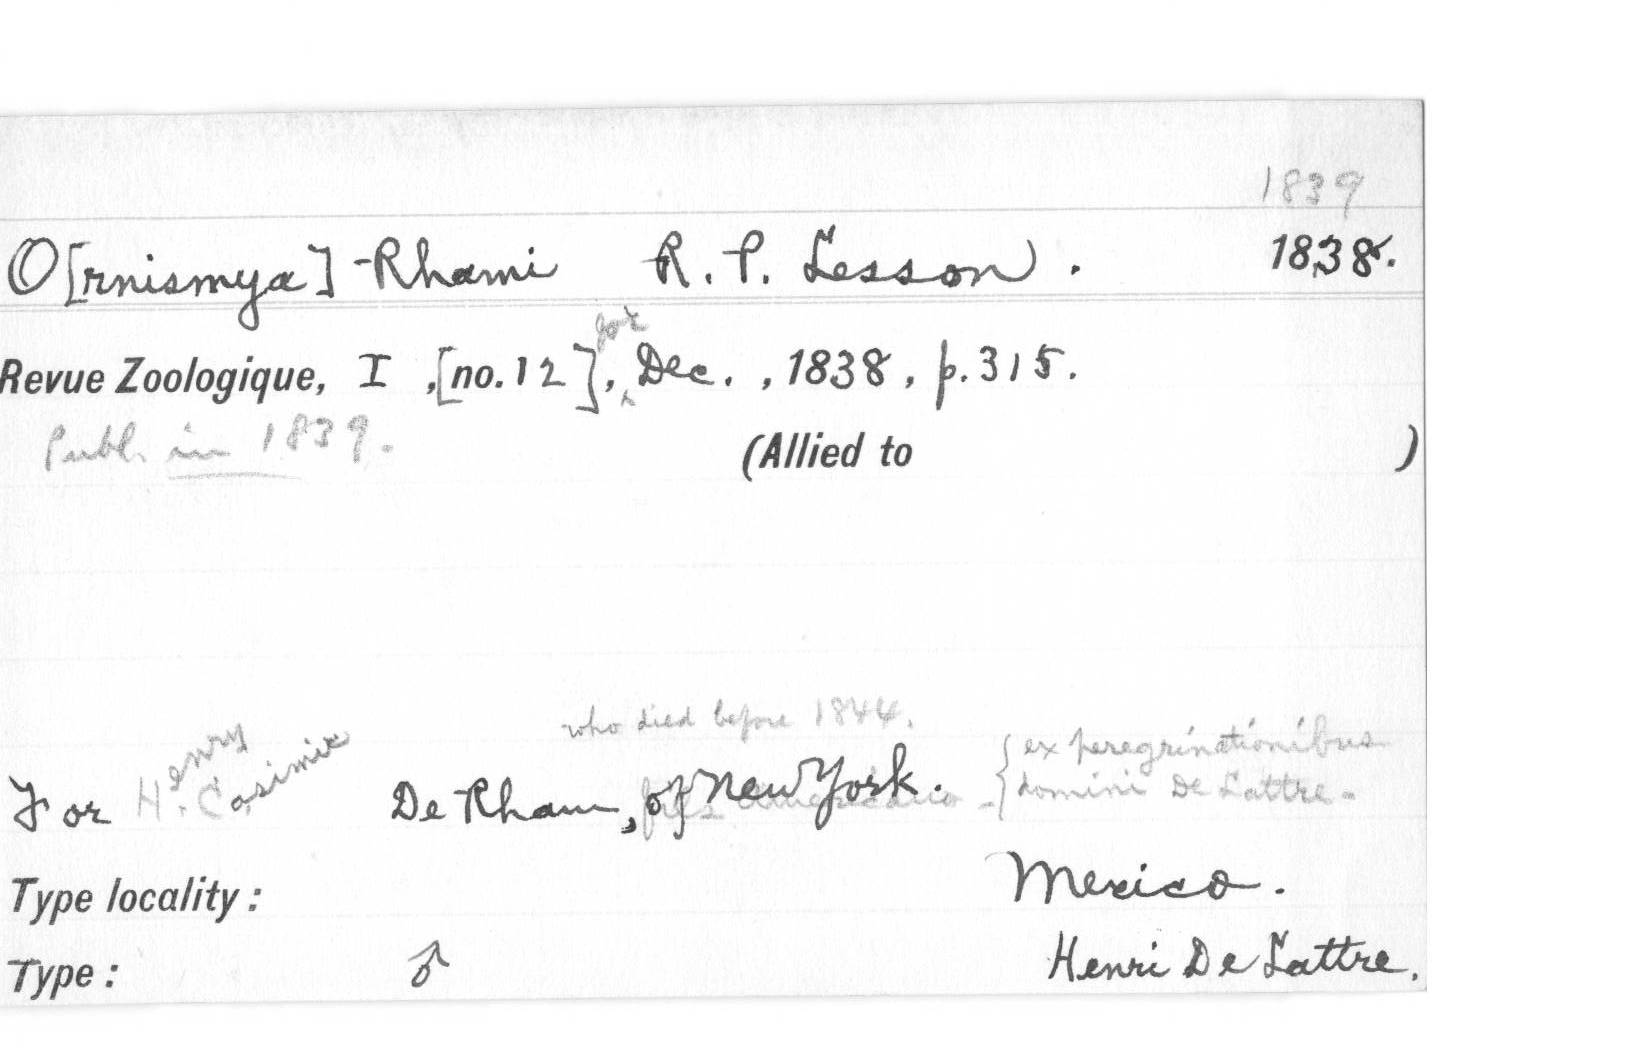 1839
O[rnismya] -Rhami R. P. Lesson. 1838.
Revue Zoologique, I, [no. 12], for Dec., 1838, p. 315.
Publ. in 1839.
(Allied to )
who died before 1844.
For Henry Casimir De Rham, of New York. {ex peregrinationibus
domini De Lattre.
Type locality: Mexico.
Type: ♂ Henri De Lattre.